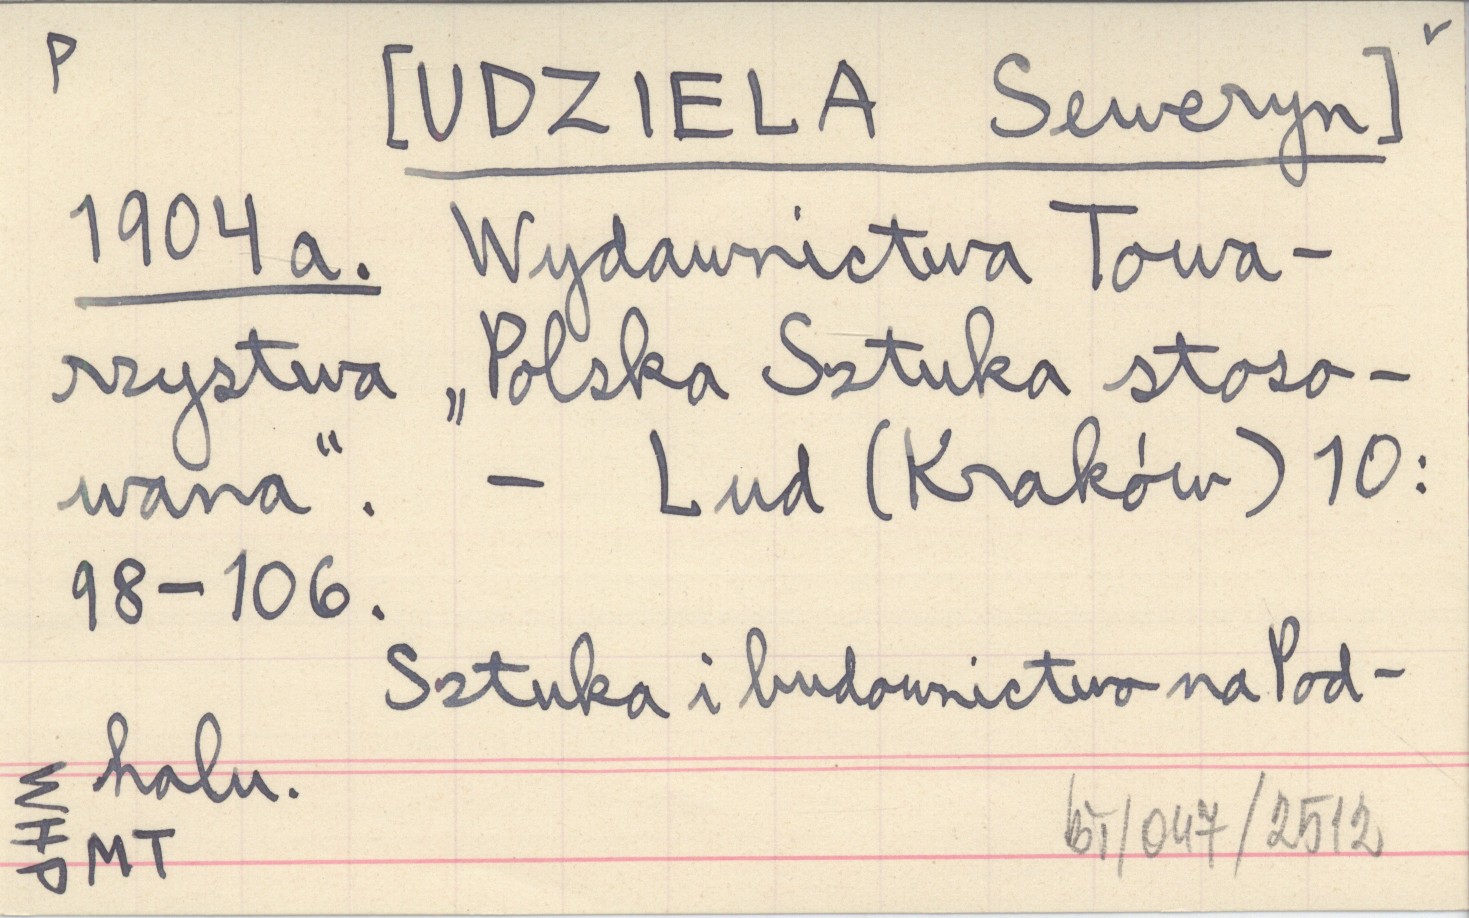 P [UDZIELA Seweryn]
1904a. Wydawnictwa Towa-
rzystwa „Polska Sztuka stoso-
wana". - Lud (Kraków) 10:
98-106.
Sztuka i budownictwo na Pod-
halu.
PHM
MT
bī/047/2512